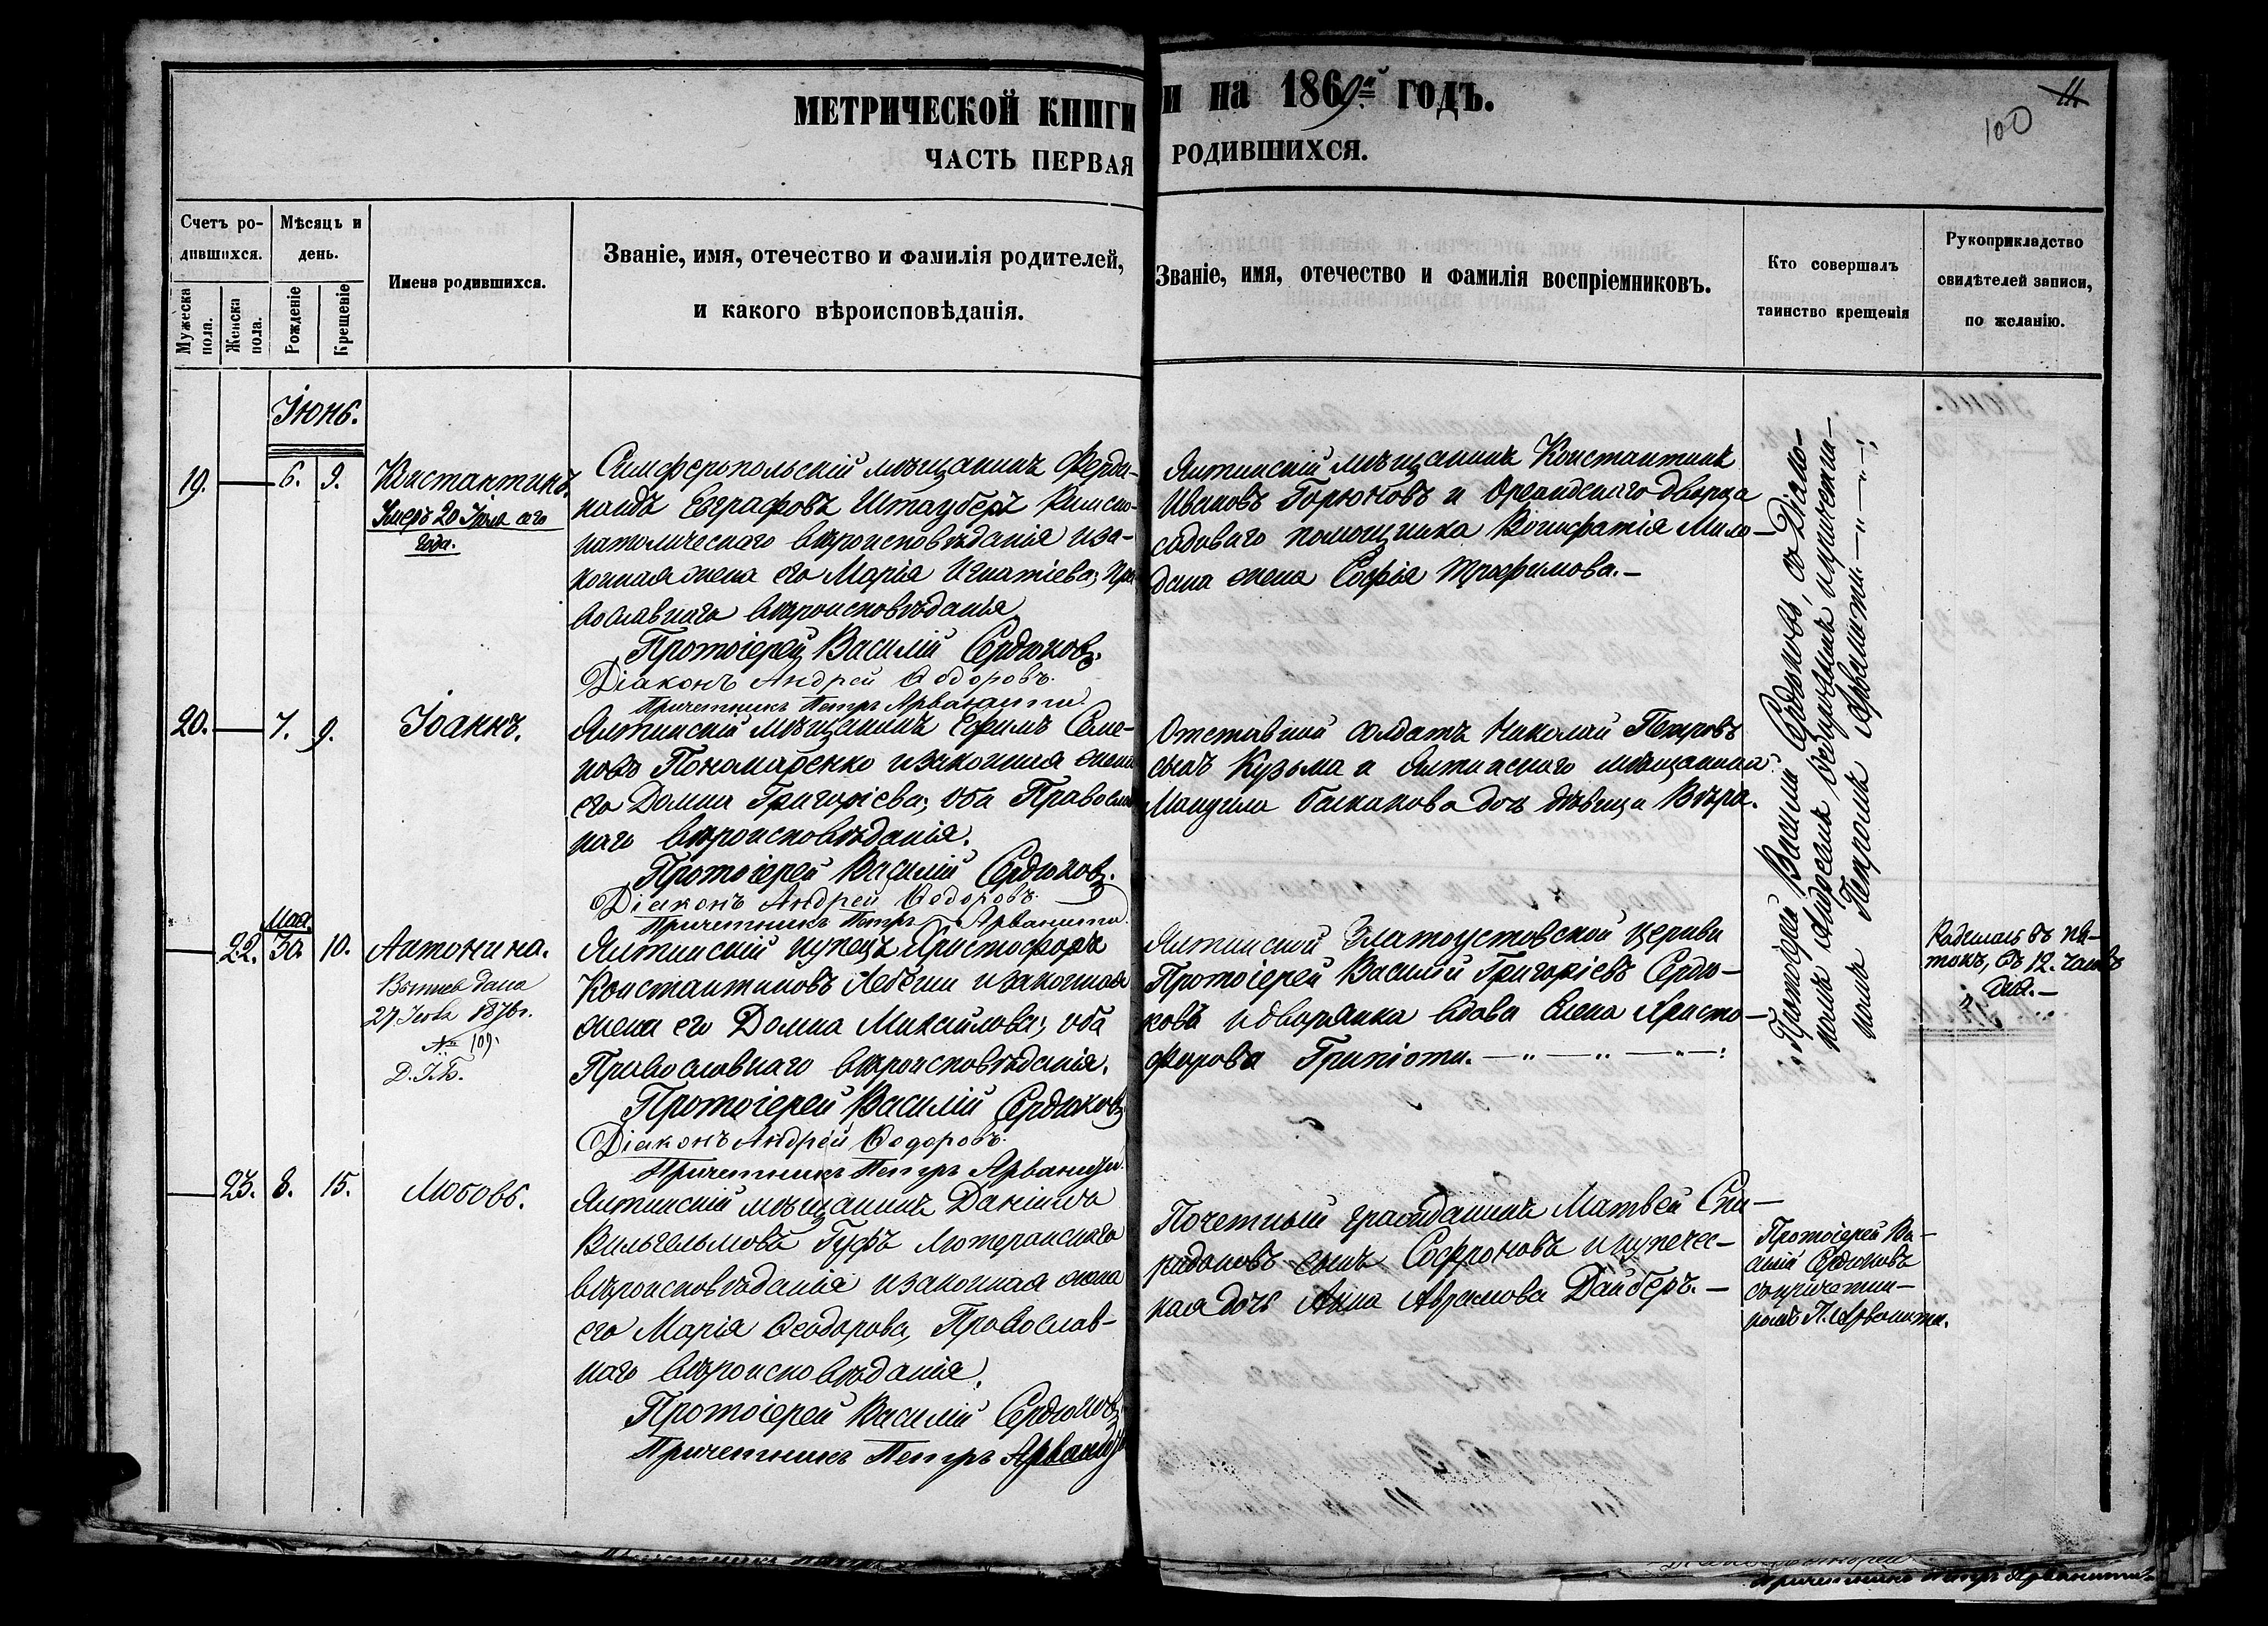 МЕТРИЧЕСКОЙ КНИГИ
и на 1869й годъ.
ЧАСТЬ ПЕРВАЯ
РОДИВШИХСЯ.
100
11.
Счетъ ро-
дившихся.
Мужеска
пола.
Женска
пола.
Мѣсяцъ и
день.
Рожденіе
Крещеніе
Имена родившихся.
Званіе, имя, отечество и фамилія родителей,
и какого вѣроисповѣданія.
Званіе, имя, отечество и фамилія воспріемниковъ.
Кто совершалъ
таинство крещенія
Рукоприкладство
свидѣтелей записи,
по желанію.
Іюнь.
19. 6. 9.
Константинъ.
Умеръ 20 Іюля сего
года.
Симферопольскій мѣщанинъ Ферди-
нандъ Евграфовъ Штауберъ Римско-
католическаго вѣроисповѣданія и за-
конная жена его Марія Игнатіева, Пра-
вославнаго вѣроисповѣданія
Протоіерей Василій Сердюковъ.
Діаконъ Андрей Ѳедоровъ.
Причетникъ Петръ Арванити.
Ялтинскій мѣщанинъ Константинъ
Ивановъ Горюновъ и Ореандскаго дворца
садоваго помощника Вонифатія Мило-
дана жена Софія Трофимова.—
20. 7. 9.
Іоаннъ.
Ялтинскій мѣщанинъ Ефимъ Семе-
новъ Пономаренко и законная жена
его Домна Григоріева, оба Православ-
наго вѣроисповѣданія.
Протоіерей Василій Сердюковъ.
Діаконъ Андрей Ѳедоровъ.
Причетникъ Петръ Арванити.
Отставной солдатъ Николай Петровъ
сынъ Кузьма и Ялтинскаго мѣщанина
дочь дѣвица Вѣра.
Мая.
22. 30. 10.
Антонина.
дана
27 1878г.
№ 109.
Ялтинскій купецъ Христофоръ
Константиновъ и законная
жена его Домна Михайлова, оба
Православнаго вѣроисповѣданія.
Протоіерей Василій Сердюковъ
Діаконъ Андрей Ѳедоровъ.
Причетникъ Петръ Арванити.
Ялтинской Златоустовской церкви
Протоіерей Василій Григоріевъ Сердю-
ковъ и дворянка вдова Елена Христо-
форова Грипіоти.
Родилась въ пя-
токъ, въ 12. часовъ
дня.—
23. 8. 15.
Любовь.
Ялтинскій мѣщанинъ Даніилъ
Вильгельмовъ Гуфъ Лютеранскаго
вѣроисповѣданія и законная жена
его Марія Ѳеодорова, Православ-
наго вѣроисповѣданія.
Протоіерей Василій Сердюковъ
Причетникъ Петръ Арванити
Почетный гражданинъ Матвей Спи-
ридоновъ сынъ Софроновъ и купечес-
кая дочь Анна Абрамова Дайберъ.—
Протоіерей Василій Сердюковъ, съ Діако-
номъ Андреемъ и причетни-
комъ Петромъ Арванити
Протоіерей Ва-
силій Сердюковъ
съ причетни-
комъ П. Арванити.
Причетникъ Петръ Арванити